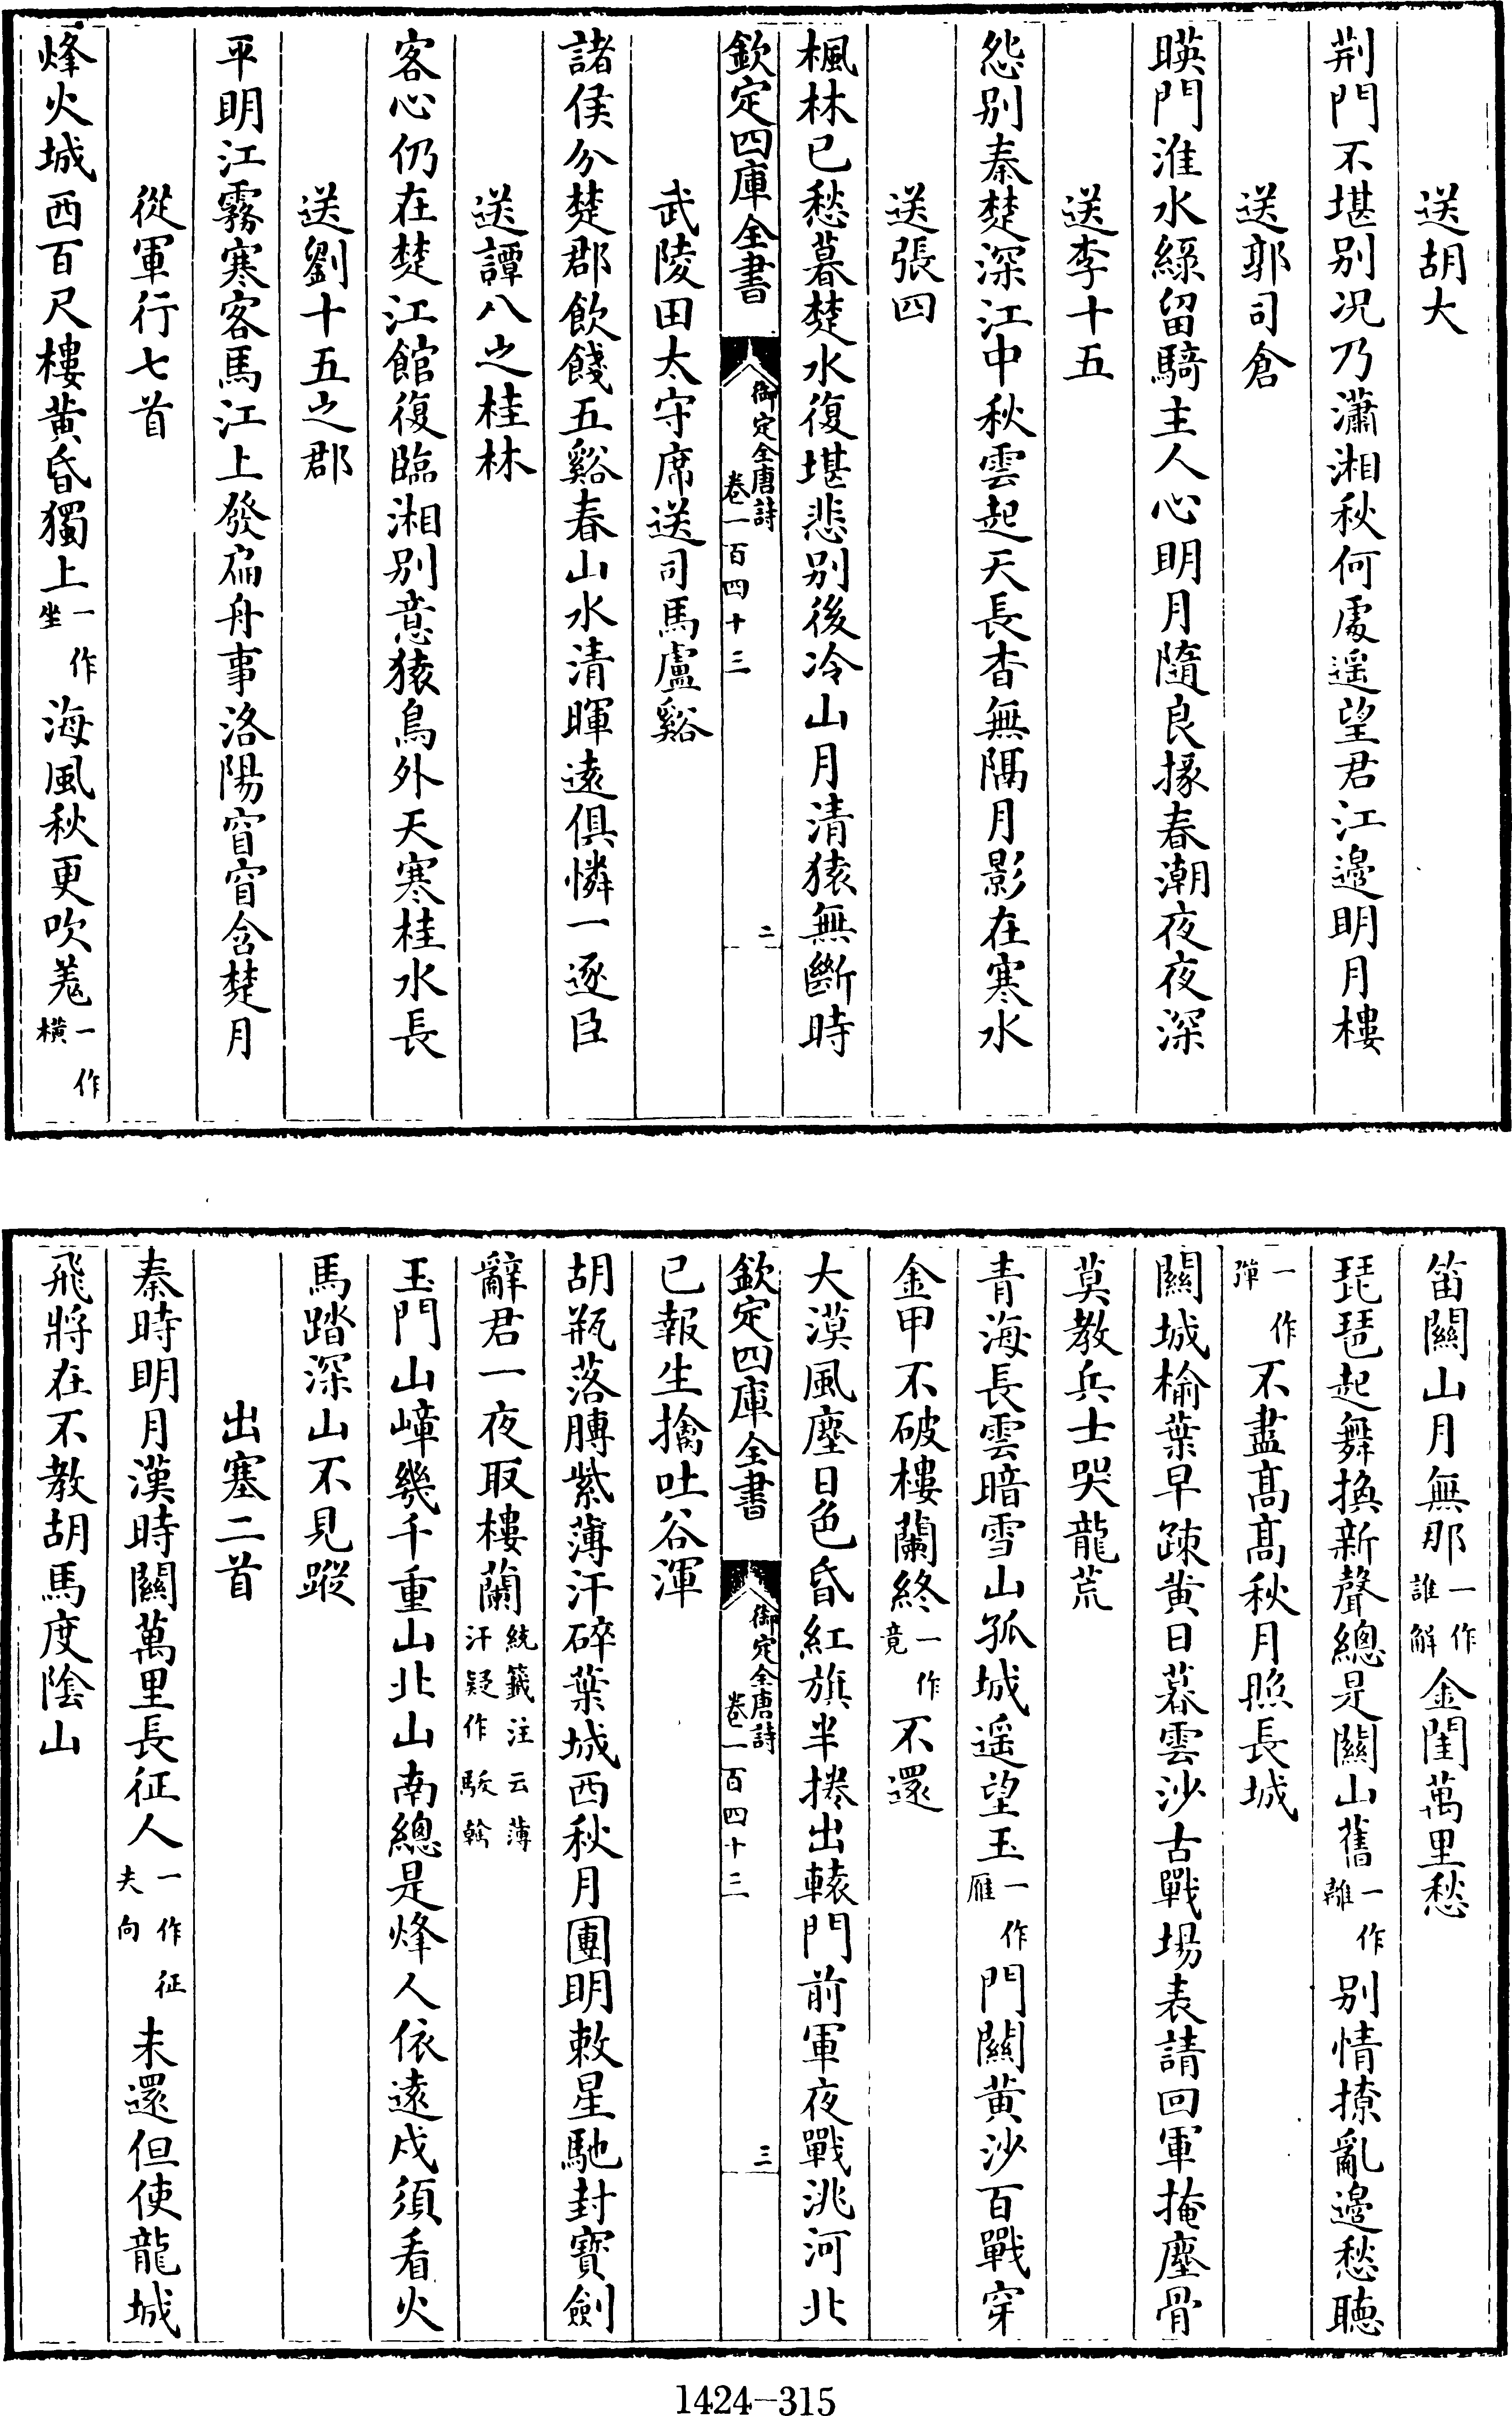 送胡大
荆門不堪别况乃瀟湘秋何處遥望君江邊明月樓
送郭司倉
暎門淮水綠留騎主人心明月隨良掾春潮夜夜深
送李十五
怨别秦楚深江中秋雲起天長杳無隔月影在寒水
送張四
楓林已愁暮楚水復堪悲别後冷山月清猿無斷時
欽定四庫全書
御定全唐詩
卷一百四十三
二
武陵田太守席送司馬盧谿
諸侯分楚郡飲餞五谿春山水清暉遠俱憐一逐臣
送譚八之桂林
客心仍在楚江館復臨湘别意猿鳥外天寒桂水長
送劉十五之郡
平明江霧寒客馬江上發扁舟事洛陽窅窅含楚月
從軍行七首
烽火城西百尺樓黄昏獨上一作坐海風秋更吹羗一作横
笛關山月無那一作誰解金閨萬里愁
琵琶起舞換新聲總是關山舊一作離别情撩亂邊愁聽
一作彈不盡髙髙秋月照長城
關城榆葉早疎黄日暮雲沙古戰場表請回軍掩塵骨
莫教兵士哭龍荒
青海長雲暗雪山孤城遥望玉一作雁門關黄沙百戰穿
金甲不破樓蘭終一作竟不還
大漠風塵日色昏紅旗半捲出轅門前軍夜戰洮河北
欽定四庫全書
御定全唐詩
卷一百四十三
三
已報生擒吐谷渾
胡瓶落膊紫薄汗碎葉城西秋月團明敕星馳封寶劍
辭君一夜取樓蘭統籖注云薄汗疑作駁䮧
玉門山嶂幾千重山北山南總是烽人依遠戍須看火
馬踏深山不見蹤
出塞二首
秦時明月漢時關萬里長征人一作征夫向未還但使龍城
飛將在不教胡馬度陰山
1424-315